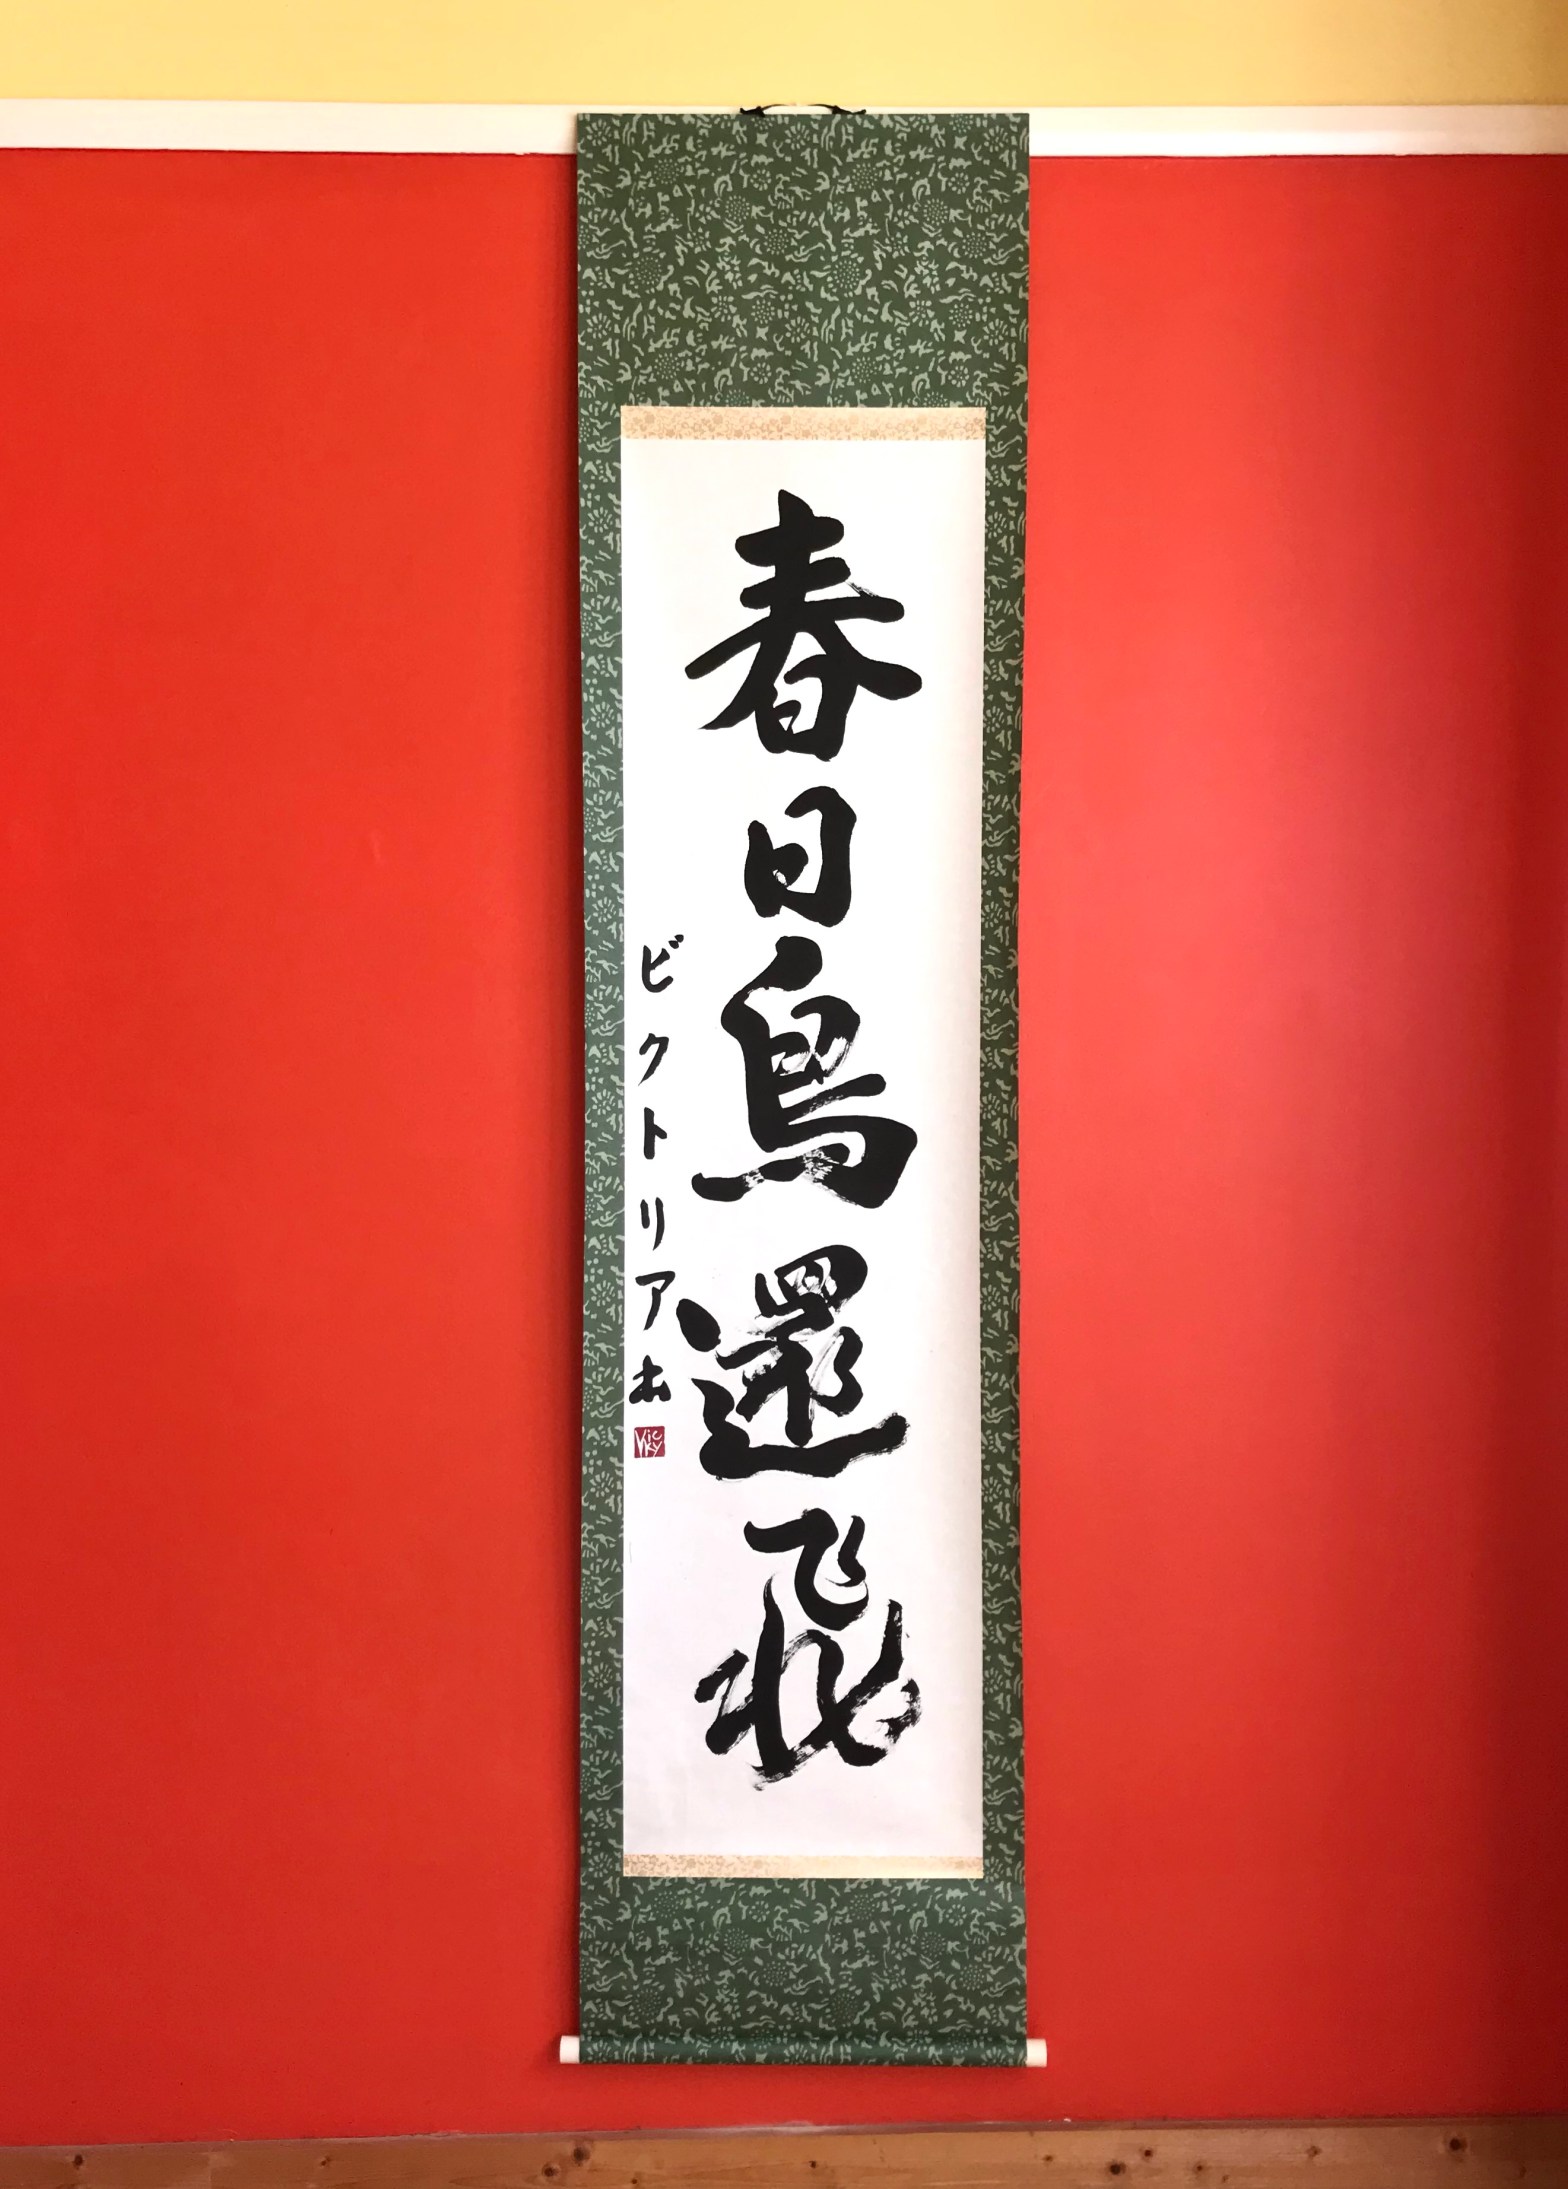 春日鳥還飛
ビクトリア書
Vicky